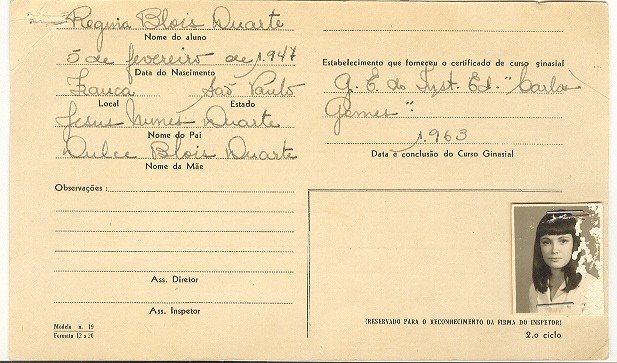 Regina Blois Duarte
Nome do aluno
5 de fevereiro de 1.947
Data do Nascimento
Franca São Paulo
Local Estado
Jesus Nunes Duarte
Nome do Pai
Dulce Blois Duarte
Nome da Mãe
Observações :
Ass. Diretor
Ass. Inspetor
Modelo n. 19
Formato 12 x 20
Estabelecimento que forneceu o certificado de curso ginasial
G. E. do Inst. Ed. "Carlos
Gomes".
1.963
Data e conclusão do Curso Ginasial
(RESERVADO PARA O RECONHECIMENTO DA FIRMA DO INSPETOR)
2.o ciclo